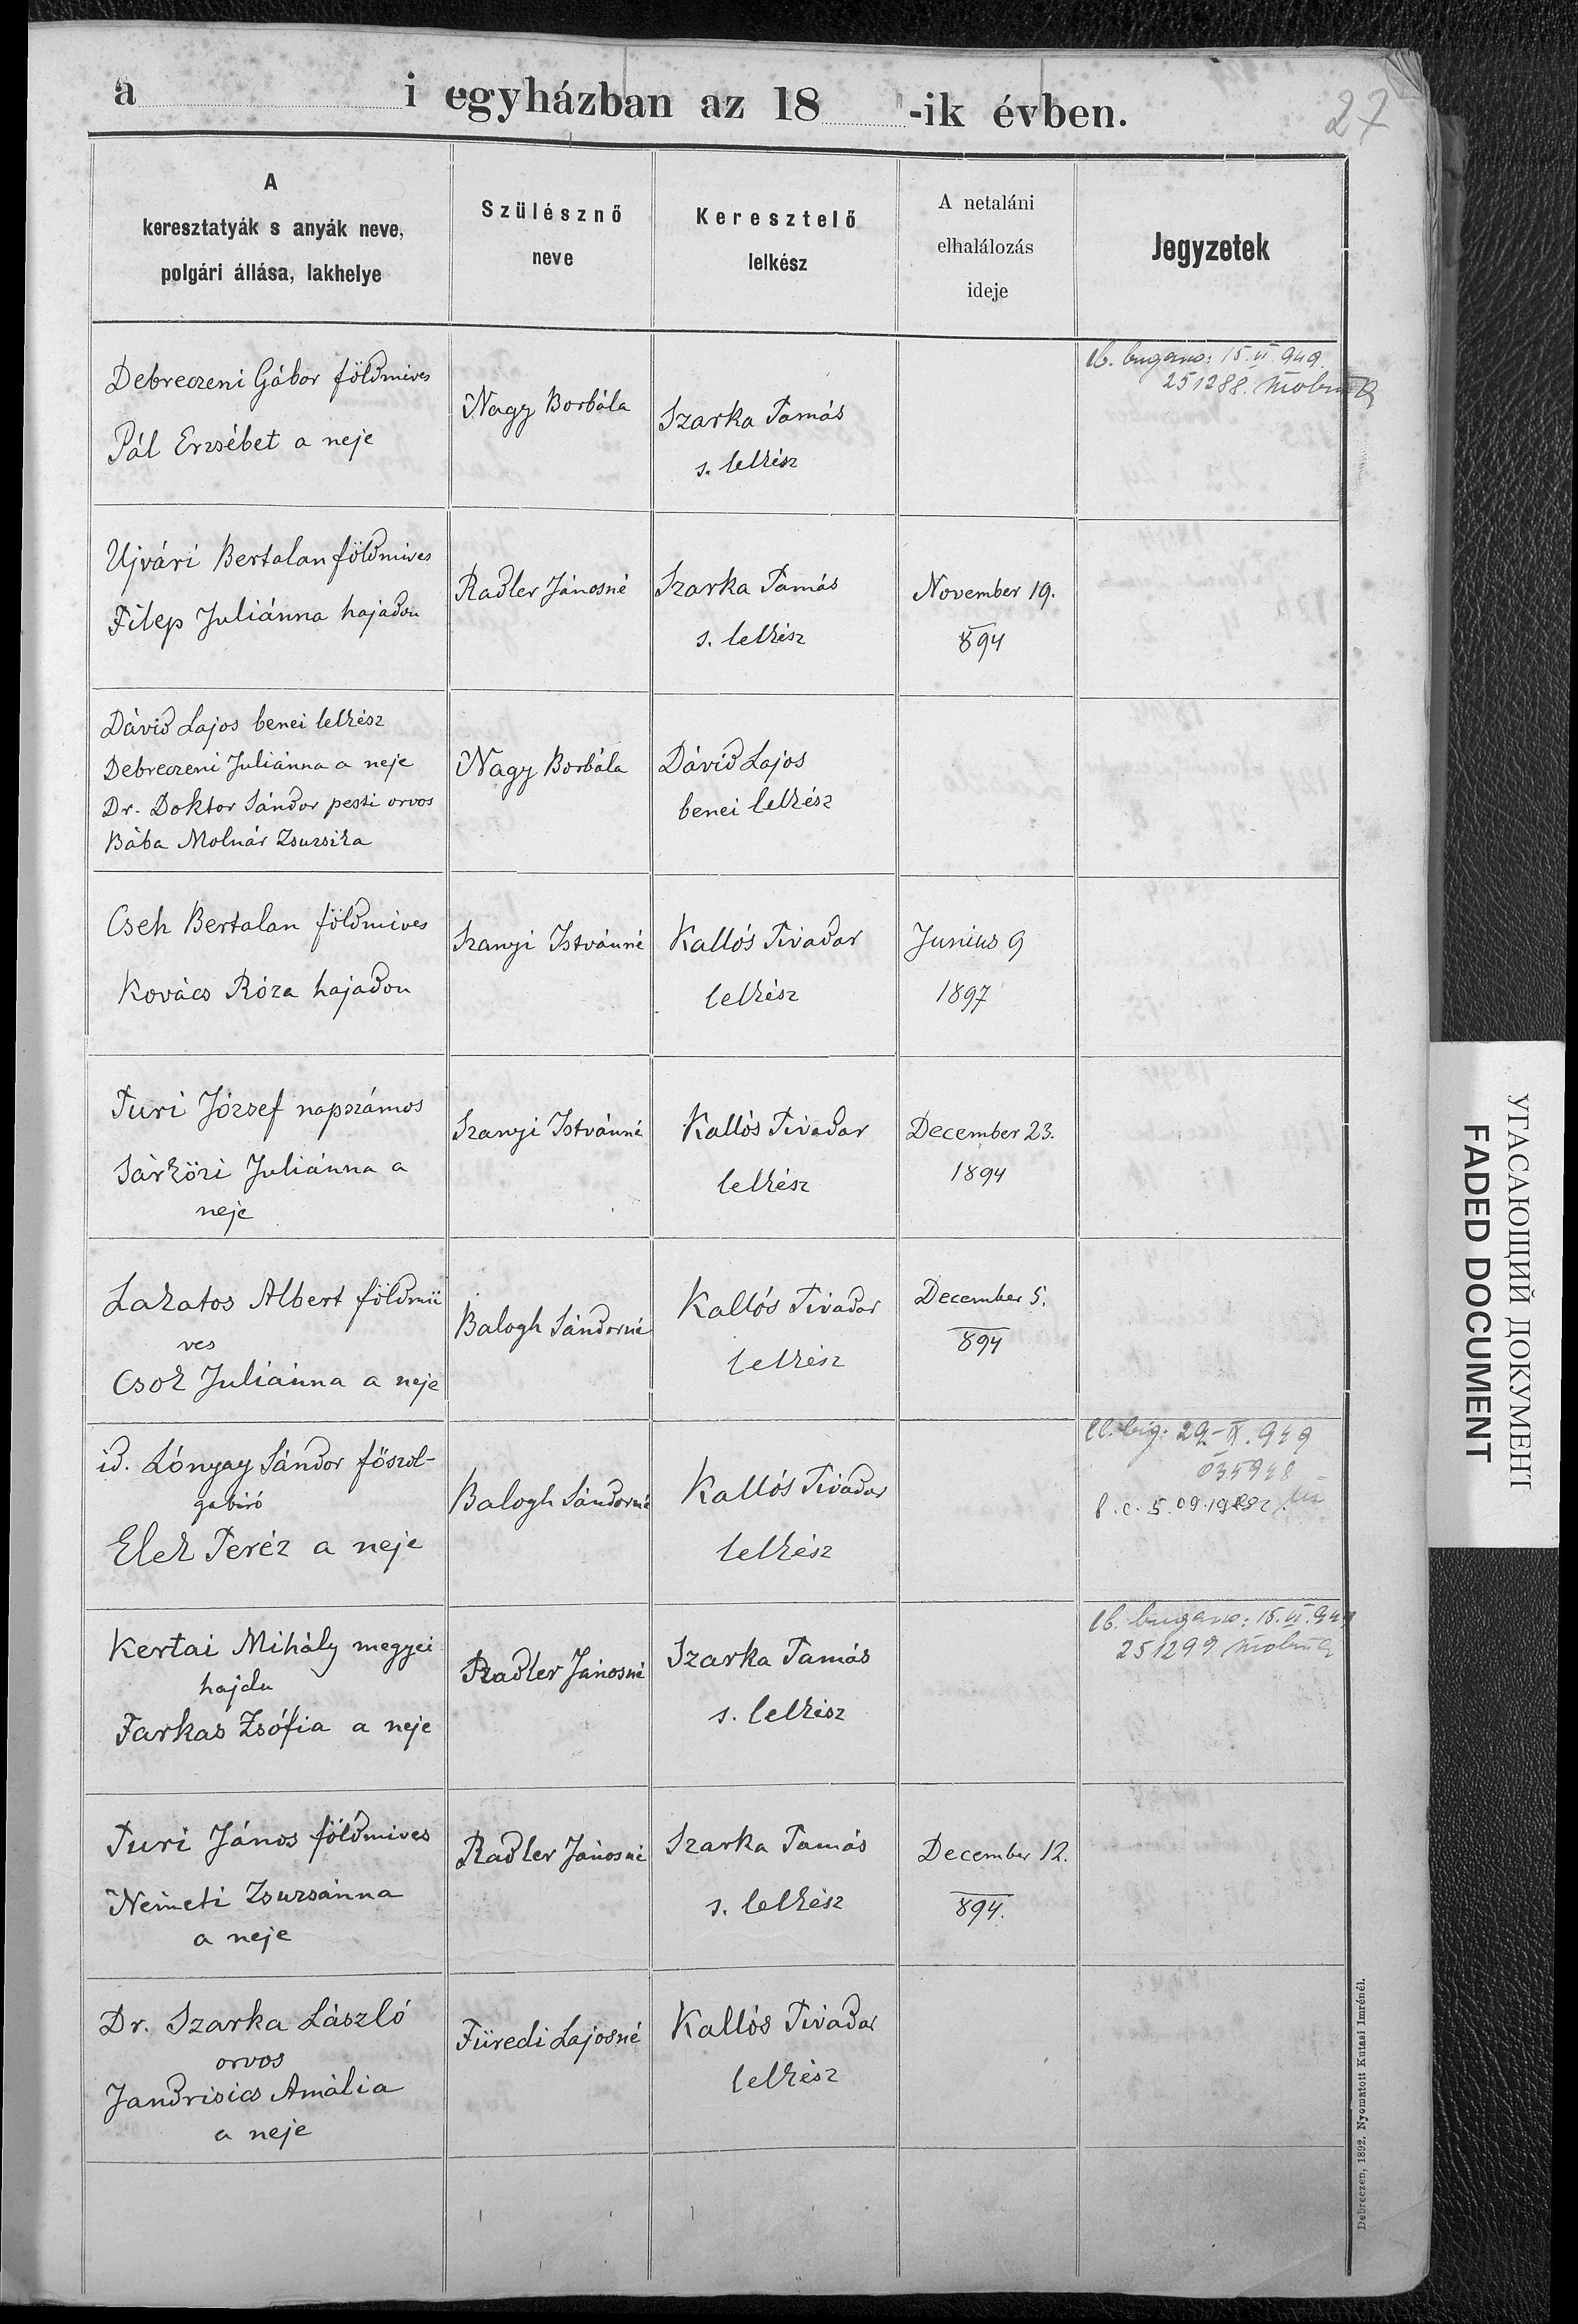 a i egyházban az 18 -ik évben.
27
A
keresztatyák s anyák neve,
polgári állása, lakhelye
Szülésznő
neve
Keresztelő
lelkész
A netaláni
elhalálozás
ideje
Jegyzetek
Debreczeni Gábor földmives
Pál Erzsébet a neje
Nagy Borbála
Szarka Tamás
s. lelkész
15. VI. 949
251288.
Ujvári Bertalan földmives
Filep Juliánna hajadon
Radler Jánosné
Szarka Tamás
s. lelkész
November 19.
894
Dávid Lajos benei lelkész
Debreczeni Juliánna a neje
Dr. Doktor Sándor pesti orvos
Bába Molnár Zsuzsika
Nagy Borbála
Dávid Lajos
benei lelkész
Cseh Bertalan földmives
Kovács Róza hajadon
Szanyi Istvánné
Kallós Tivadar
lelkész
Junius 9
1897
Turi József napszámos
Sárközi Juliánna a
neje
Szanyi Istvánné
Kallós Tivadar
lelkész
December 23.
1894
Lakatos Albert földmü
ves
Csok Juliánna a neje
Balogh Sándorné
Kallós Tivadar
lelkész
December 5.
894
id. Lónyay Sándor főszol-
gabiró
Elek Teréz a neje
Balogh Sándorné
Kallós Tivadar
lelkész
29-IX.949
035948
Kertai Mihály megyei
hajdu
Farkas Zsófia a neje
Radler Jánosné
Szarka Tamás
s. lelkész
15. VI. 949
251299
Turi János földmives
Németi Zsuzsánna
a neje
Radler Jánosné
Szarka Tamás
s. lelkész
December 12.
894.
Dr. Szarka László
orvos
Jandrisics Amália
a neje
Füredi Lajosné
Kallós Tivadar
lelkész
Debreczen, 1892. Nyomatott Kutasi Imrénél.
УГАСАЮЩИЙ ДОКУМЕНТ
FADED DOCUMENT